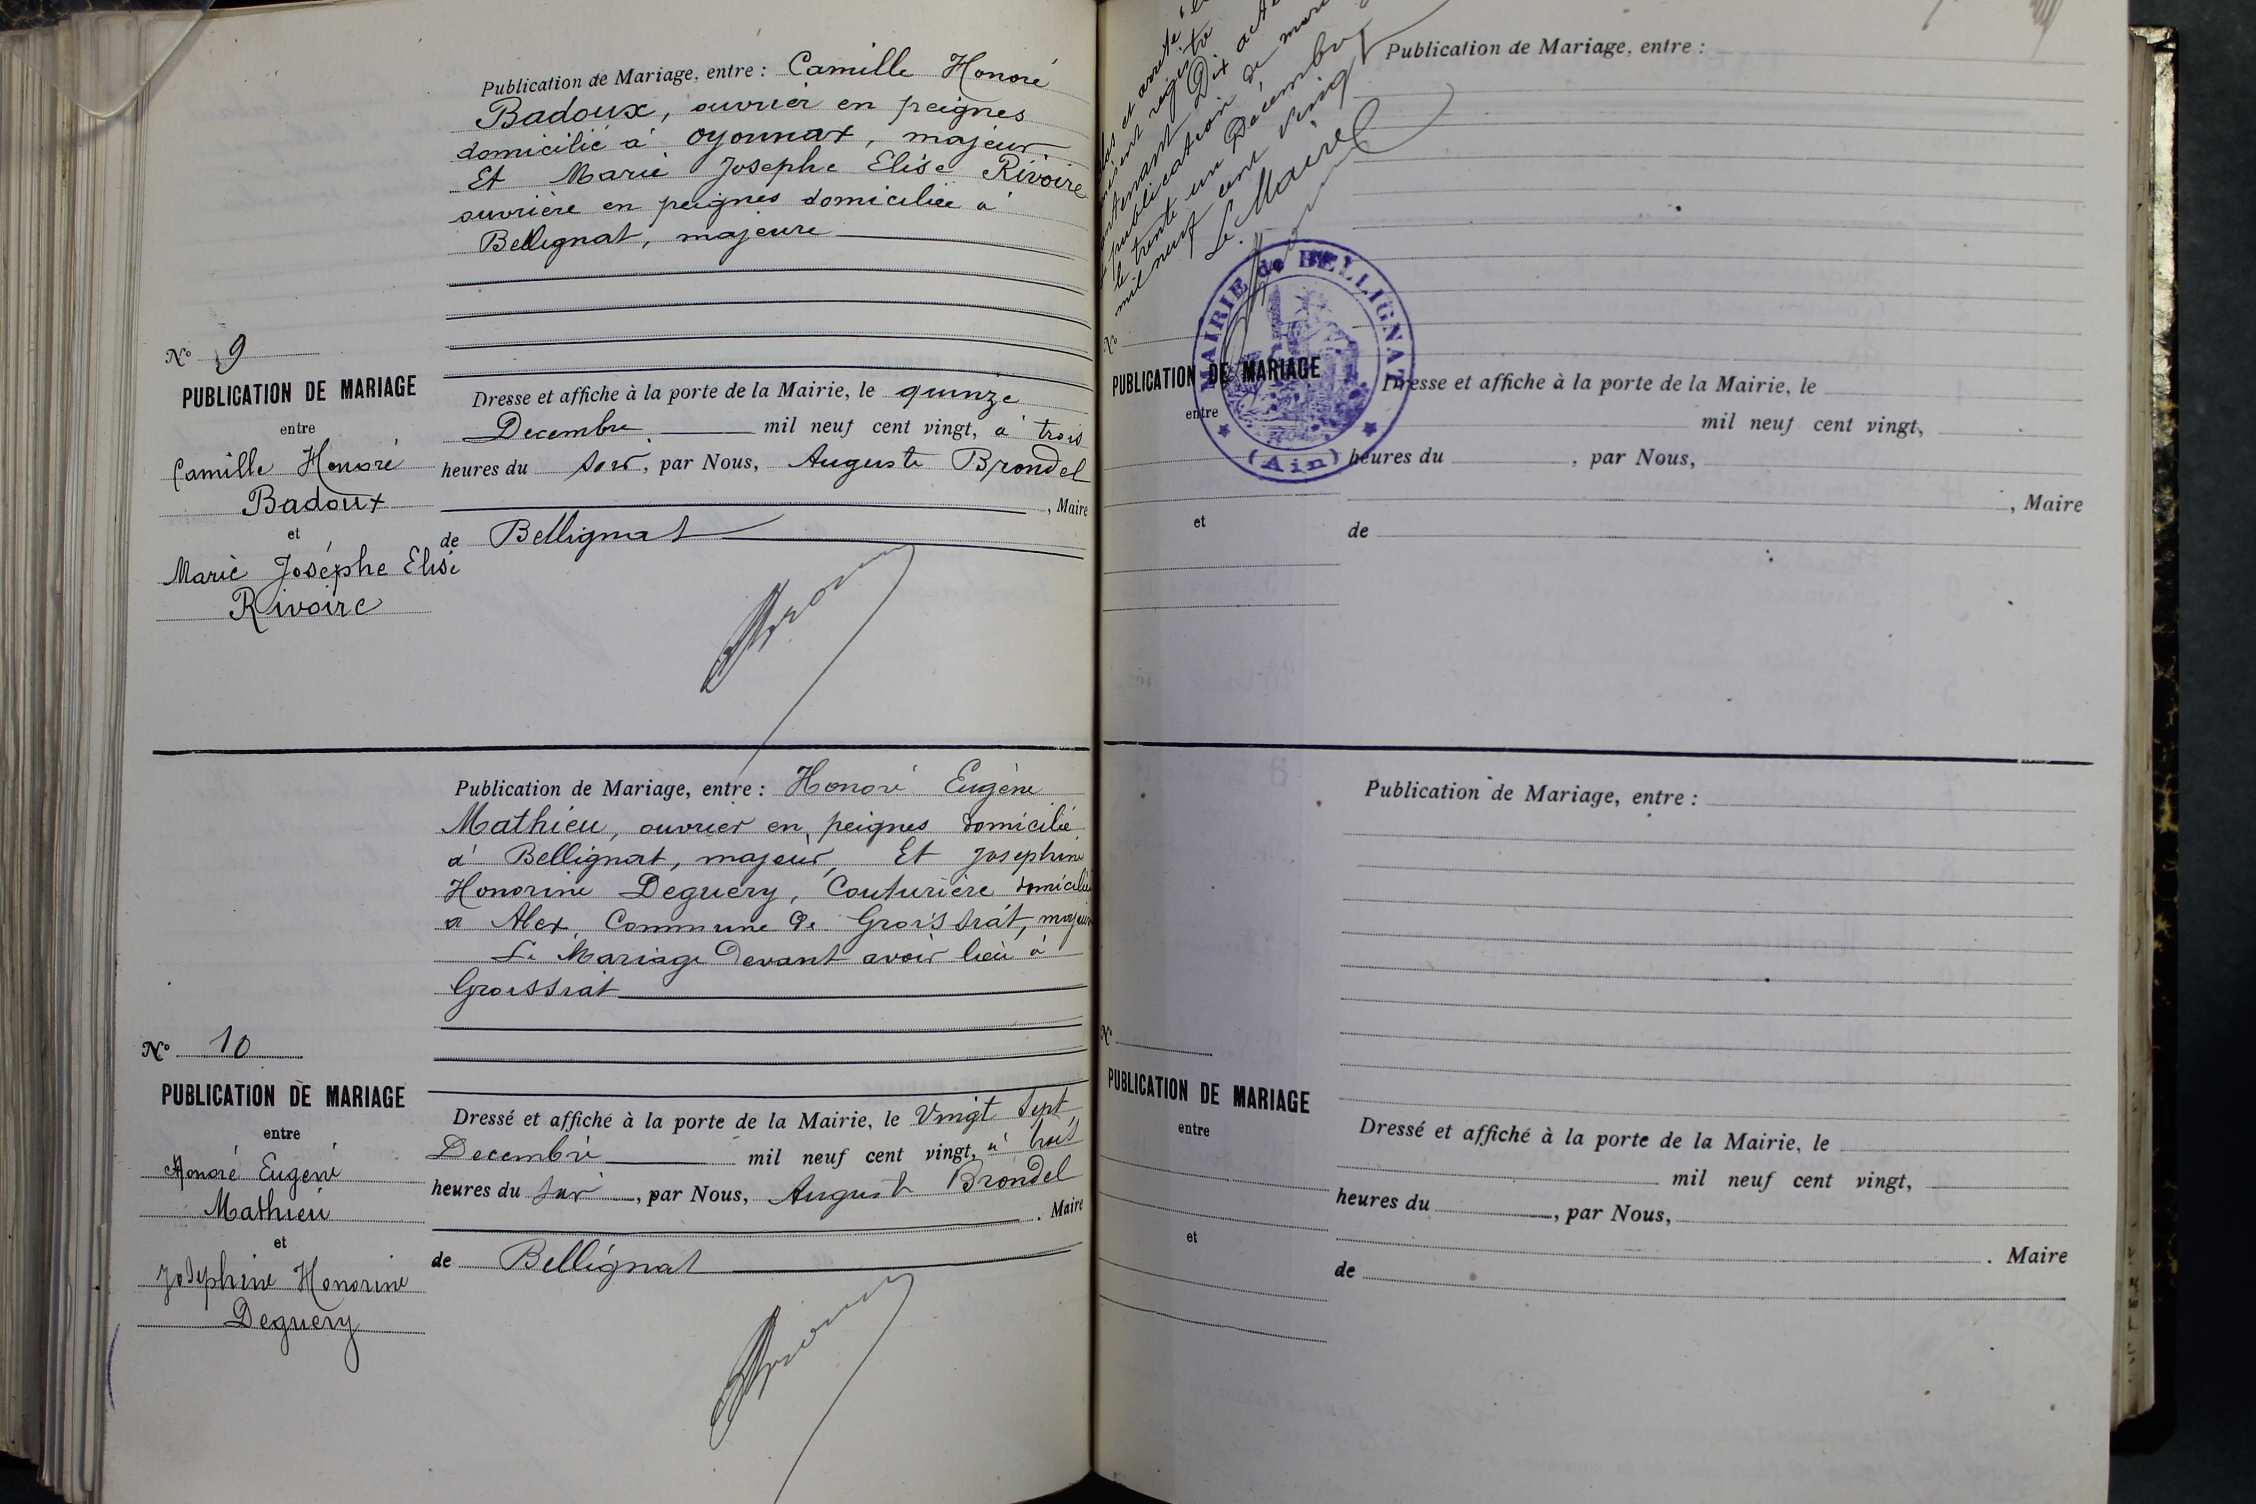 Publication de Mariage, entre : Camille Honoré
Badoux, ouvrier en peignes
domicilié à Oyonnax, majeur
Et Marie Josephe Elise Rivoire
ouvrière en peignes domiciliée à
Bellignat, majeure
N° 9
PUBLICATION DE MARIAGE
entre
Camille Honoré
Badoux
et
Marie Josephe Elise
Rivoire
Dresse et affiche à la porte de la Mairie, le quinze
Decembre mil neuf cent vingt, à trois
heures du soir, par Nous, Auguste Brondel
, Maire
de Bellignat
Publication de Mariage, entre : Honoré Eugène
Mathieu, ouvrier en peignes domicilié
à Bellignat, majeur, Et Josephine
Honorine Deguery, Couturière domiciliée
à Alex, Commune de Groissiat, majeure
Le Mariage Devant avoir lieu à
Groissiat
N° 10
PUBLICATION DE MARIAGE
entre
Honoré Eugène
Mathieu
et
Josephine Honorine
Deguery
Dressé et affiché à la porte de la Mairie, le Vingt Sept
Decembre mil neuf cent vingt, à trois
heures du soir, par Nous, Auguste Brondel
. Maire
de Bellignat
et arreté
registre
Dix
publication de
le trente un Décembre
mil neuf cent vingt
Le Maire
MAIRIE de BELLIGNAT
(Ain)
Publication de Mariage, entre :
N°
PUBLICATION DE MARIAGE
entre
et
Dresse et affiche à la porte de la Mairie, le
mil neuf cent vingt,
heures du , par Nous,
, Maire
de
Publication de Mariage, entre :
N°
PUBLICATION DE MARIAGE
entre
et
Dressé et affiché à la porte de la Mairie, le
mil neuf cent vingt,
heures du , par Nous,
. Maire
de